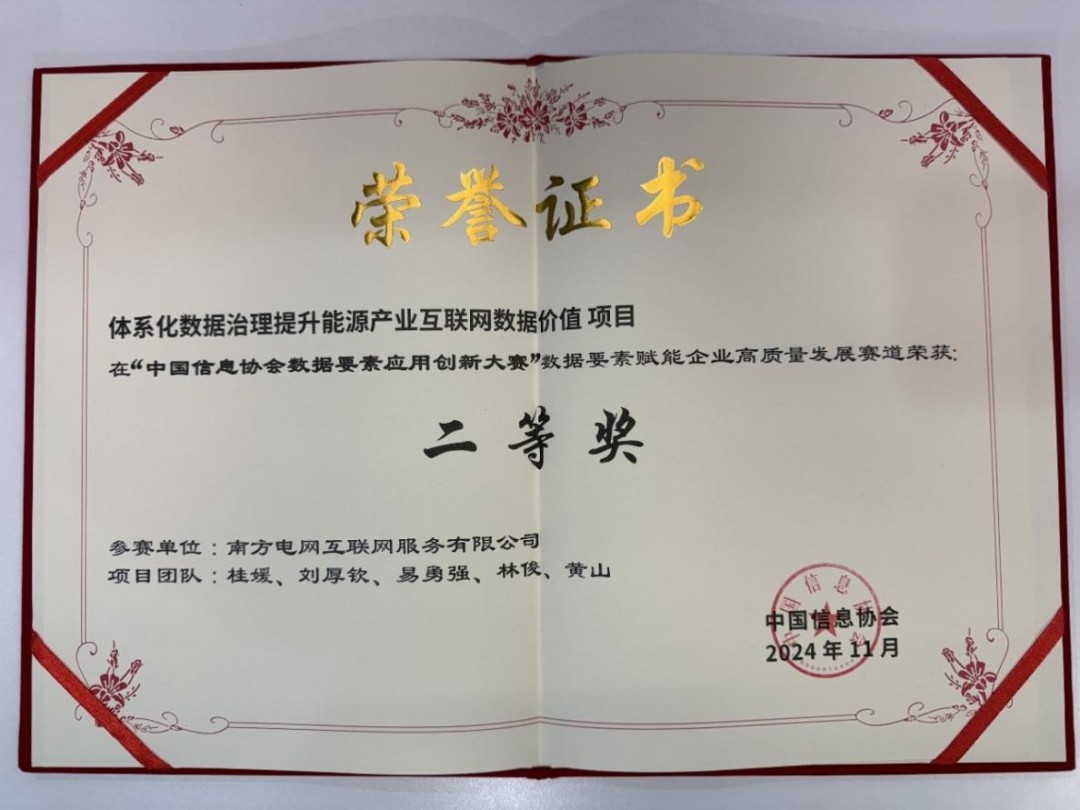 荣誉证书
体系化数据治理提升能源产业互联网数据价值 项目
在“中国信息协会数据要素应用创新大赛”数据要素赋能企业高质量发展赛道荣获:
二等奖
参赛单位：南方电网互联网服务有限公司
项目团队：桂媛、刘厚钦、易勇强、林俊、黄山
中国信息协会
2024年11月
中国信息协会